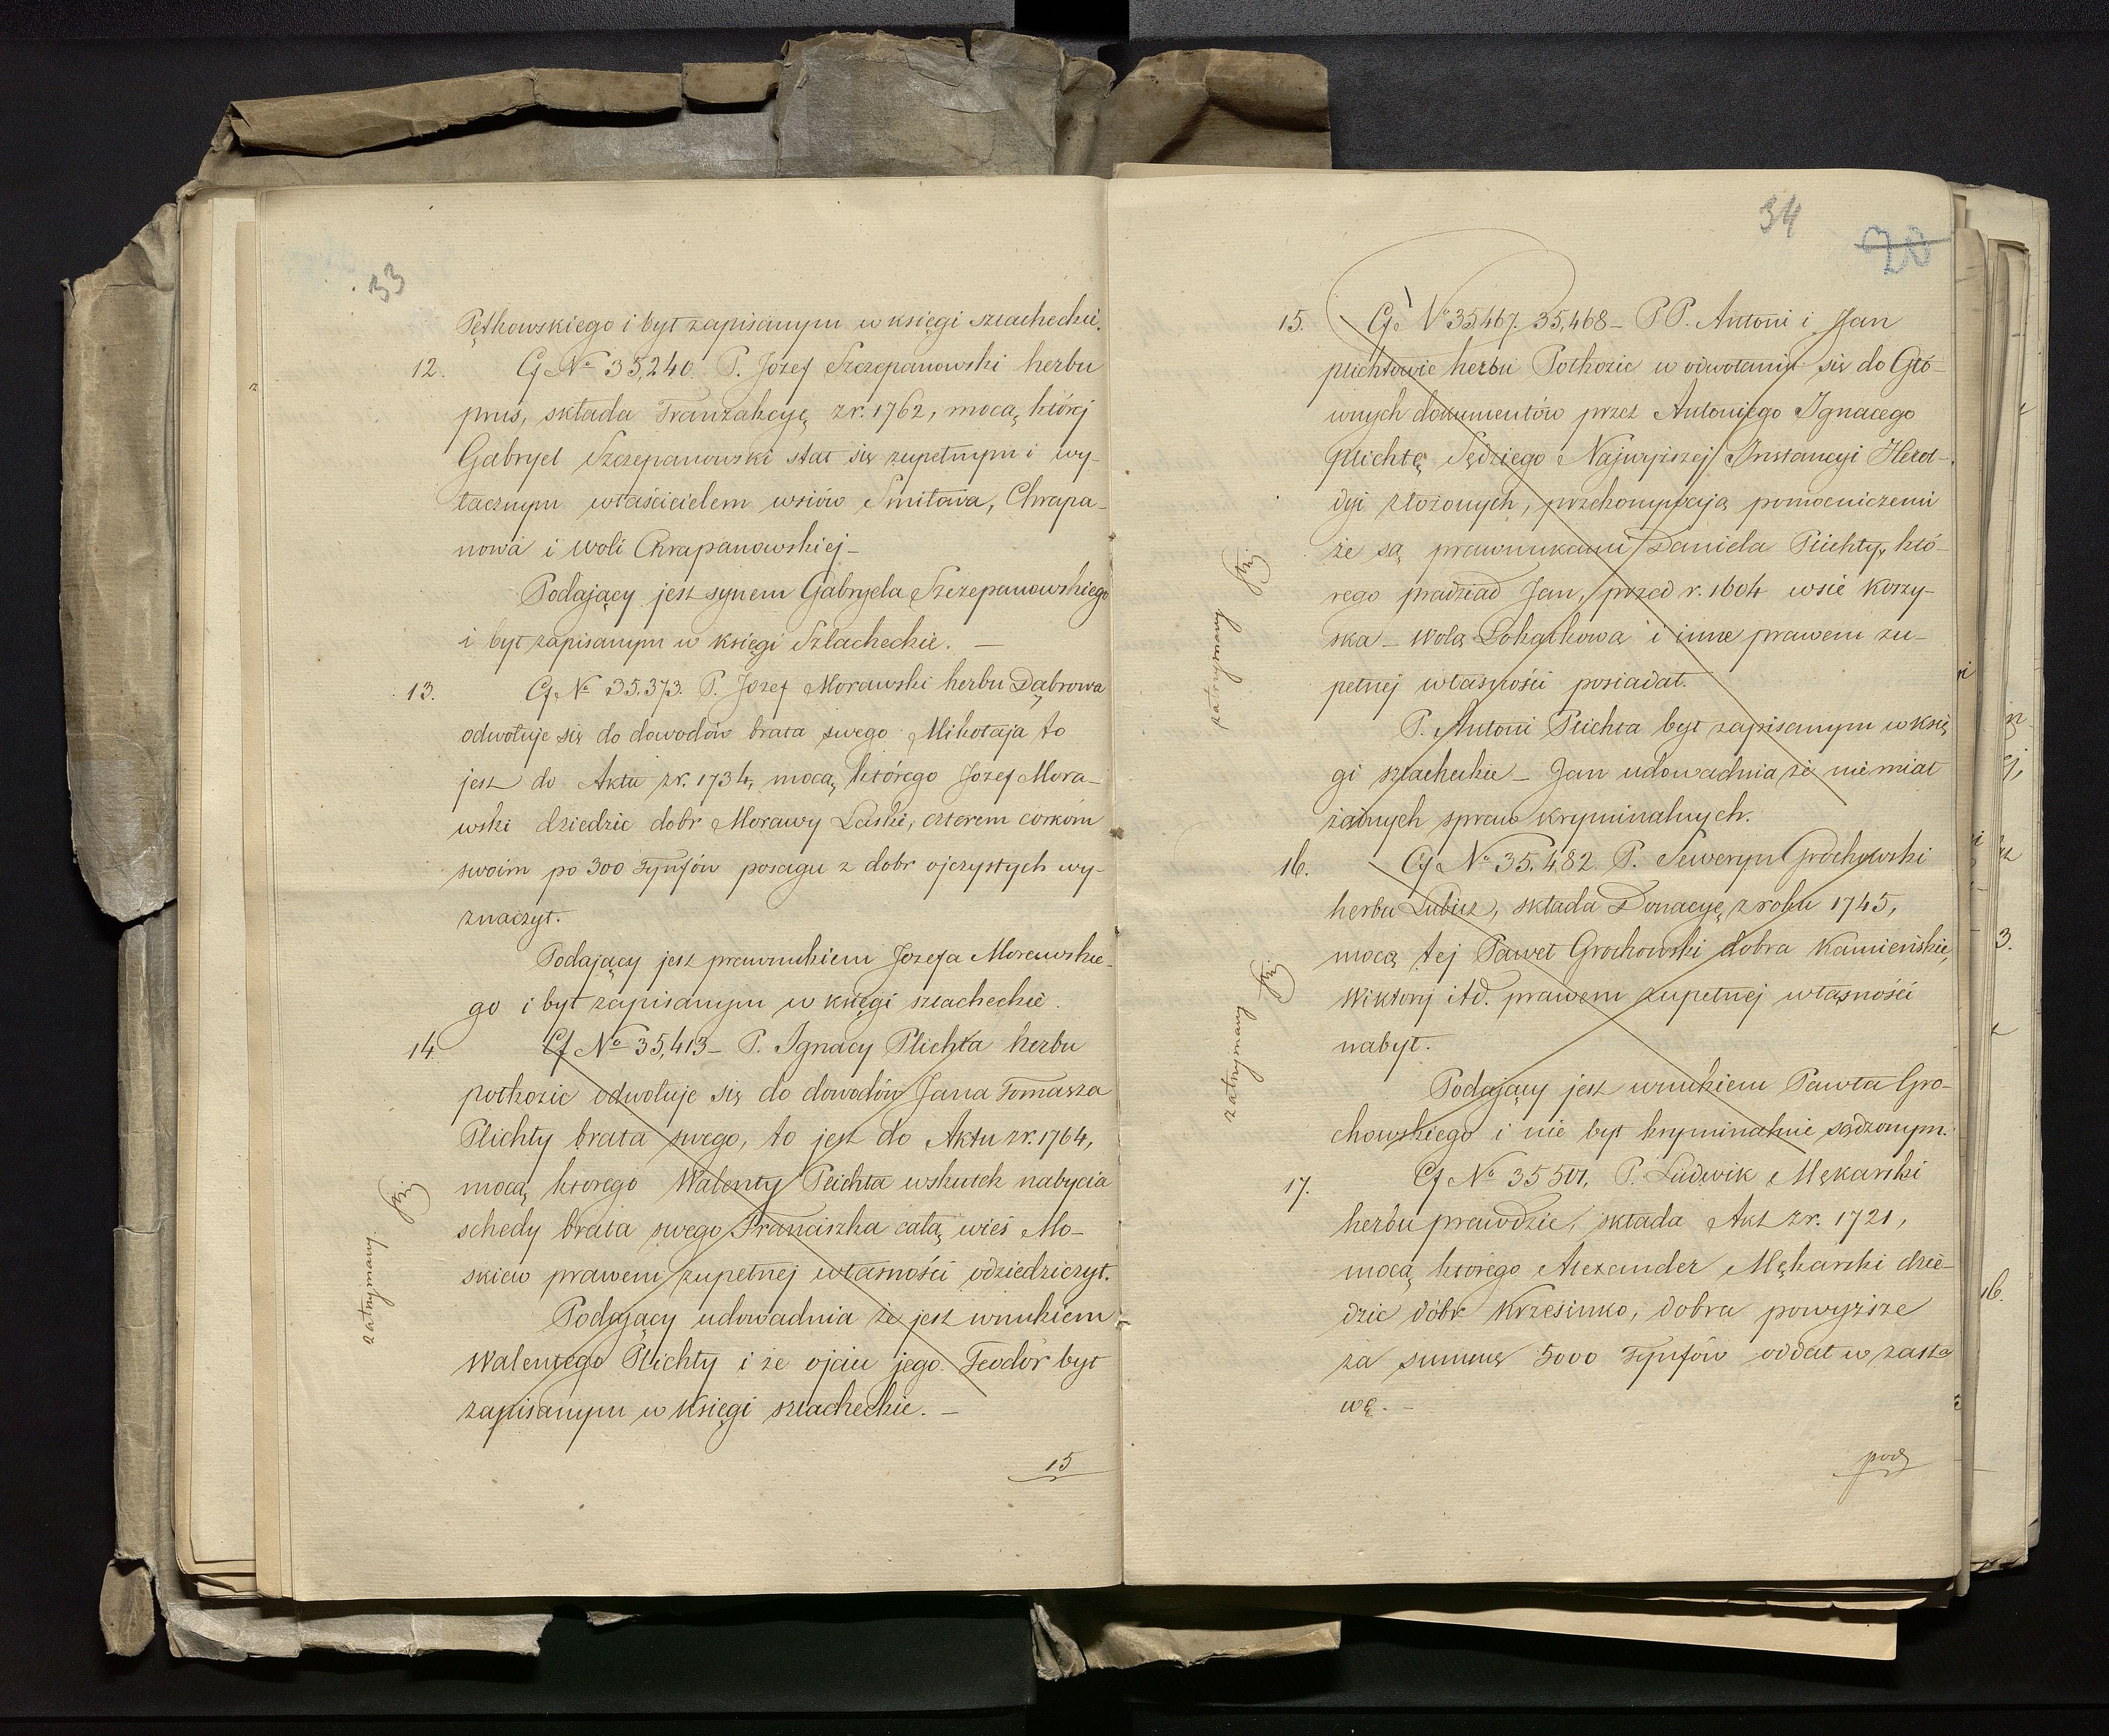 33
Pętkowskiego i był zapisanym w księgi szlacheckie.
12. Cf № 35,240. P. Józef Szczepanowski herbu
prus, składa Tranzakcyę z r. 1762, mocą, której
Gabryel Szczepanowski stał się zupełnym i wy-
łacznym właścicielem wsiów Smiłowa, Chrapa-
nowa i Woli Chrapanowskiej –
Podający jest synem Gabryela Szczepanowskiego
i był zapisanym w księgi Szlacheckie. –
13. Cf № 35.373. P. Jozef Morawski herbu Dąbrowa
odwołuje się do dowodów brata swego Mikołaja to
jest do Aktu z r. 1734, mocą, którego Jozef Mora-
wski dziedzic dobr Morawy Laski, czterem corkom
swoim po 300 Tynfów posagu z dobr ojczystych wy-
znaczył.
Podający jest prawnukiem Jozefa Morawskie-
go i był zapisanym w księgi szlacheckie.
14. Cf № 35,413 – P. Ignacy Plichta herbu
połkozic odwołuje się do dowodów Jana Tomasza
Plichty brata swego, to jest do Aktu z r. 1764,
mocą, ktorego Walenty Plichta wskutek nabycia
schedy brata swego Franciszka całą wieś Mo-
skiew prawem zupełnej własności odziedziczył.
Podający udowadnia że jest wnukiem
Walentego Plichty i że ojciu jego Teodor był
zapisanym w Księgi szlacheckie. –
zatrzymany
15
34
20
15. Cf № 35,467. 35,468 – PP. Antoni i Jan
plichtowie herbu Połkozic w odwołaniu się do Głó-
wnych dokumentów przez Antoniego Ignacego
Plichtę Sędziego Najwyższej Instancyi Herol-
dyi złożonych, przekonywają pomocniczemi
że są prawnukami Daniela Plichty, któ-
rego pradziad Jan, przed r. 1604 wsie Korzy-
ska – Wola Łokatkowa i inne prawem zu-
pełnej własności posiadał.
P. Antoni Plichta był zapisanym w księ
gi szlacheckie – Jan udowadnia że nie miał
żadnych spraw kryminalnych.
zatrzymany
16. Cf № 35,482 P. Seweryn Grochowski
herbu Lubicz, składa Donacyę z roku 1745,
mocą tej Paweł Grochowski dobra Kamieńskie,
Wiktory itd. prawem zupełnej własności
nabył.
Podający jest wnukiem Pawła Gro-
chowskiego i nie był kryminalnie sądzonym.
zatrzymany
17. Cf № 35501, P. Ludwik Mękarski
herbu prawdzic, składa Akt z r. 1721,
mocą którego Alexander Mękarski dzie-
dzic dóbr Krzesinko, dobra powyższe
za summę 5000 Tynfów oddał w zasta
wę. –
pod